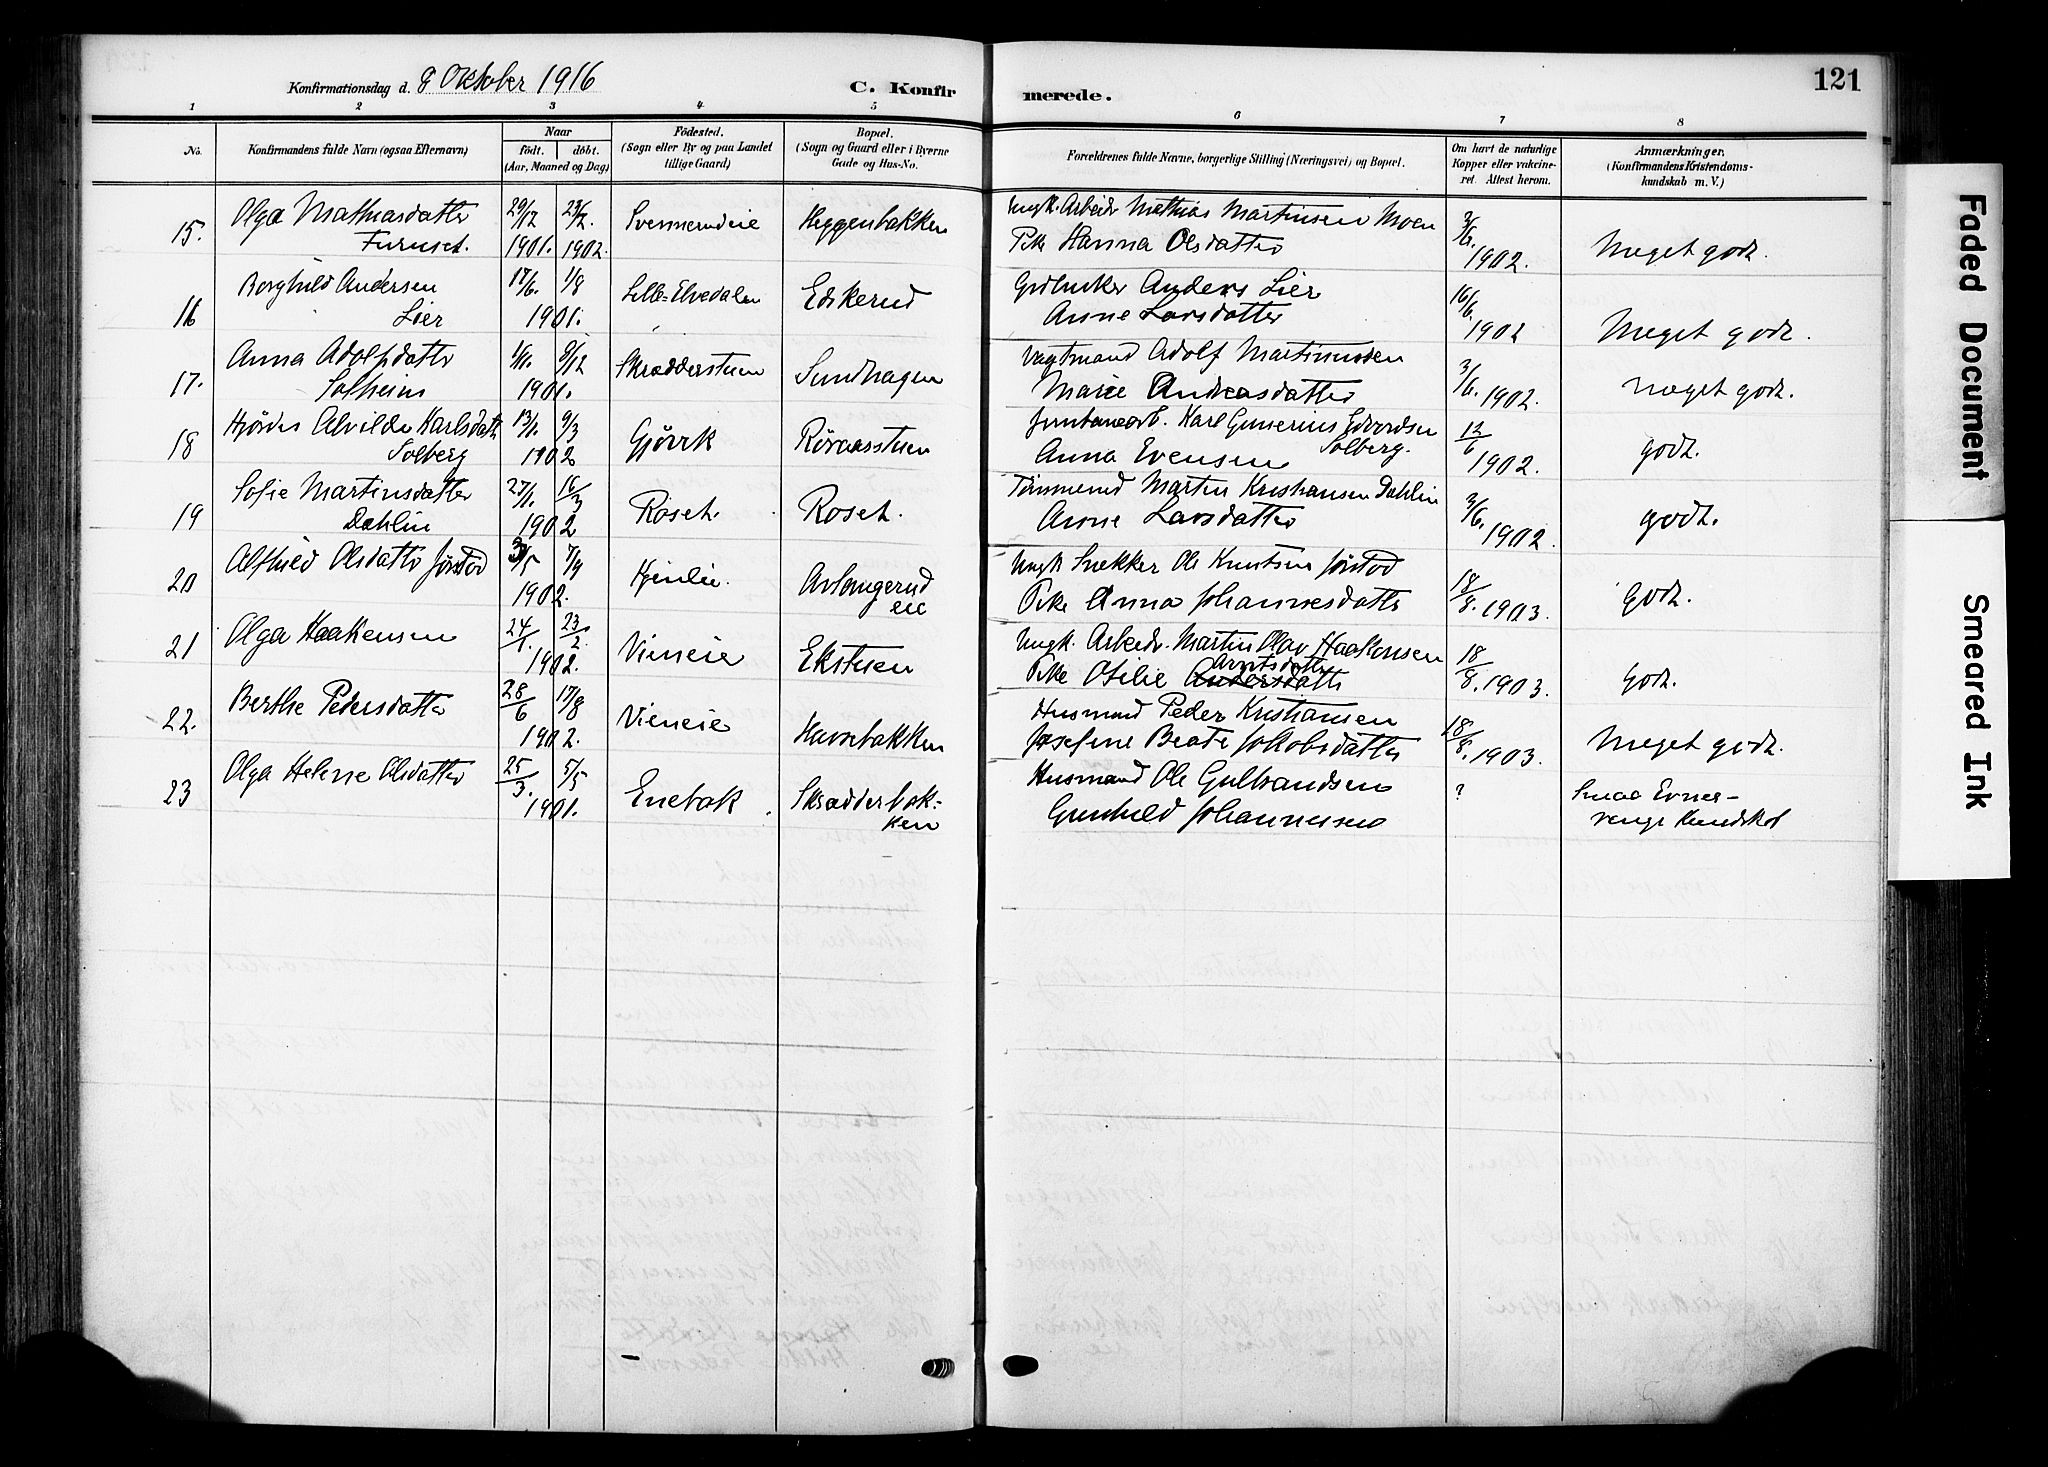 Konfirmationsdag d. 8 Oktober 1916
C. Konfirmerede.
121
1 2 3 4 5 6 7 8
No.
Konfirmandens fulde Navn (ogsaa Efternavn)
Naar
født. døbt.
(Aar, Maaned og Dag)
Fødested.
(Sogn eller By og paa Landet
tillige Gaard)
Bopæl.
(Sogn og Gaard eller i Byerne
Gade og Hus-No.
Forældrenes fulde Navne, borgerlige Stilling (Næringsvei) og Bopæl.
Om havt de naturlige
Kopper eller vakcine-
ret. Attest herom.
Anmærkninger.
(Konfirmandens Kristendoms-
kundskab m. V.)
15. Olga Mathiasdatter 29/12 23/2. Svennerudeie Heggenbakken Ungk. Arbeidr Mathias Martinsen Moen 3/6.
Furuset. 1901. 1902. Pike Hanna Olsdatter 1902. Meget godt.
16 Borghild Andersen 17/6. 1/8 Lille-Elvedalen Edskerud Gdbruker Anders Lier 16/6.
Lier 1901. Anne Larsdatter 1902 Meget godt.
17. Anna Adolfsdatter 9/12 Skrædderstuen Sundhagen Vagtmand Adolf Martinussen 3/6.
Solheim 1901. Marie Andreasdatter 1902. meget godt.
18 Hjørdis Alvilde Karlsdatr 13/1. 9/3 Gjøvik Røraasstuen Karl Gunerius Edvardsen 12/6
Solberg 1902 Anna Evensen Solberg. 1902. godt.
19 Sofie Martinsdatter 27/1. 16/3 Roset. Roset. Tømmermd Martin Kristiansen Dahlin 3/6.
Dahlin 1902 Anne Larsdatter 1902. godt.
20 Alfhild Olsdatter Jørstad 3/5 7/9 Aslangerud Ungk. Snekker Ole Knutsen Jørstad 18/8.
1902. eie Pike Anna Johannesdatter 1903. godt.
21 Olga Haakensen 24/1. 23/2. Vieneie Ekstuen Ungk. Arbeidr. Martin Olav Haakonsen 18/8.
1902. Pike Otilie Andersdatter Arntsdatter 1903. godt.
22. Berthe Pedersdatter 28/6 17/8 Vieneie Haresbakken Husmand Peder Kristiansen 18/8.
1902. Josefine Beate Jakobsdatter 1903. Meget godt.
23 Olga Helene Olsdatter 25/3. 5/5 Enebak. Skrædderbak- Husmand Ole Gulbrandsen ? Smaa Evner-
1901. ken Gunhild Johannesen ringe Kundskab
Faded Document
Smeared Ink